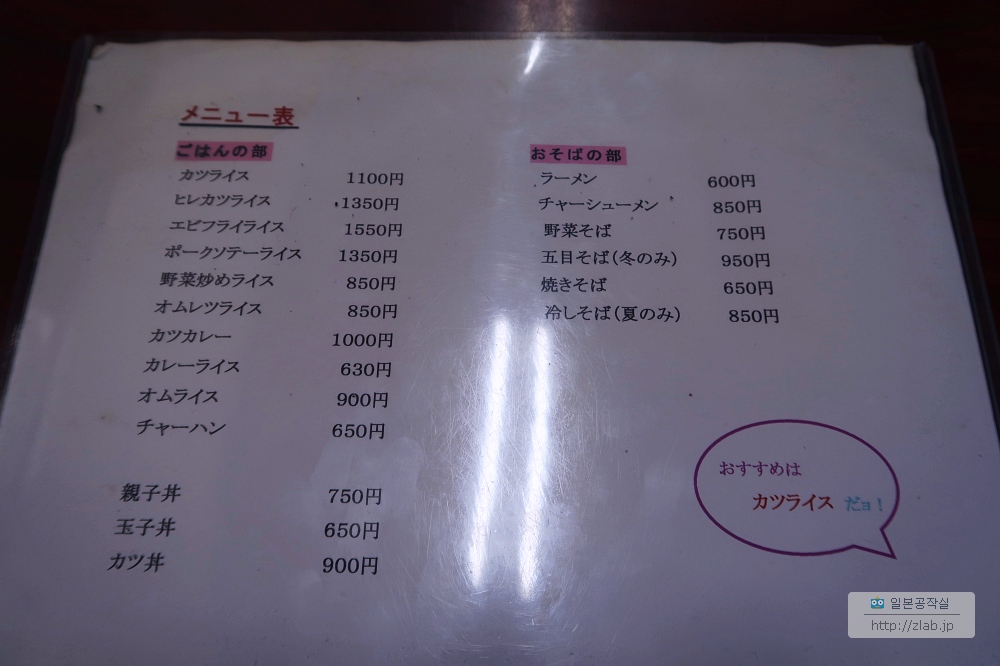 メニュー表
ごはんの部
カツライス 1100円
ヒレカツライス 1350円
エビフライライス 1550円
ポークソテーライス 1350円
野菜炒めライス 850円
オムレツライス 850円
カツカレー 1000円
カレーライス 630円
オムライス 900円
チャーハン 650円
親子丼 750円
玉子丼 650円
カツ丼 900円
おそばの部
ラーメン 600円
チャーシューメン 850円
野菜そば 750円
五目そば(冬のみ) 950円
焼きそば 650円
冷しそば(夏のみ) 850円
おすすめは
カツライス だョ!
일본공작실
http://zlab.jp